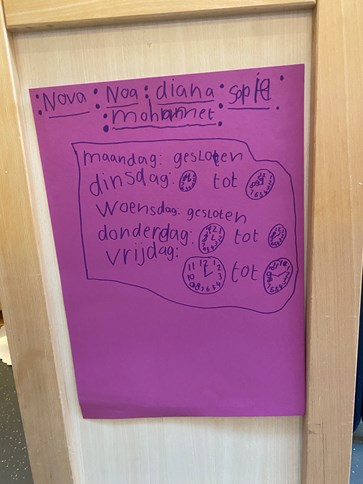 Nova Noa diana sofie
mohammet
maandag: gesloten
dinsdag: tot
woensdag: gesloten
donderdag: tot
vrijdag:
tot